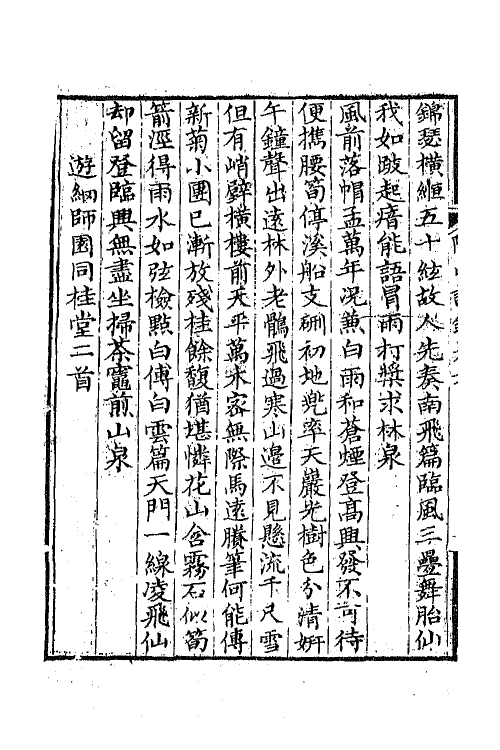 錦瑟橫絙五十絃故人先奏南飛篇臨風三疊舞胎仙
我如跛起瘖能語冒雨打槳求林泉
風前落帽孟萬年況兼白雨和蒼煙登高興發不可待
便攜腰笋停溪船支硎初地兜率天巖光樹色分清妍
午鐘聲出遠林外老鶻飛過寒山邊不見懸流千尺雪
但有峭壁橫樓前天平萬木容無際馬遠賸筆何能傳
新菊小圃已漸放殘桂餘馥猶堪憐花山含霧石似筍
箭涇得雨水如弦檢點白傅白雲篇天門一線凌飛仙
却留登臨興無盡坐掃茶竈煎山泉
遊網師園同桂堂二首